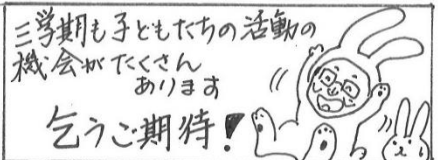 三学期も子どもたちの活動の
機会がたくさん
あります
乞うご期待!